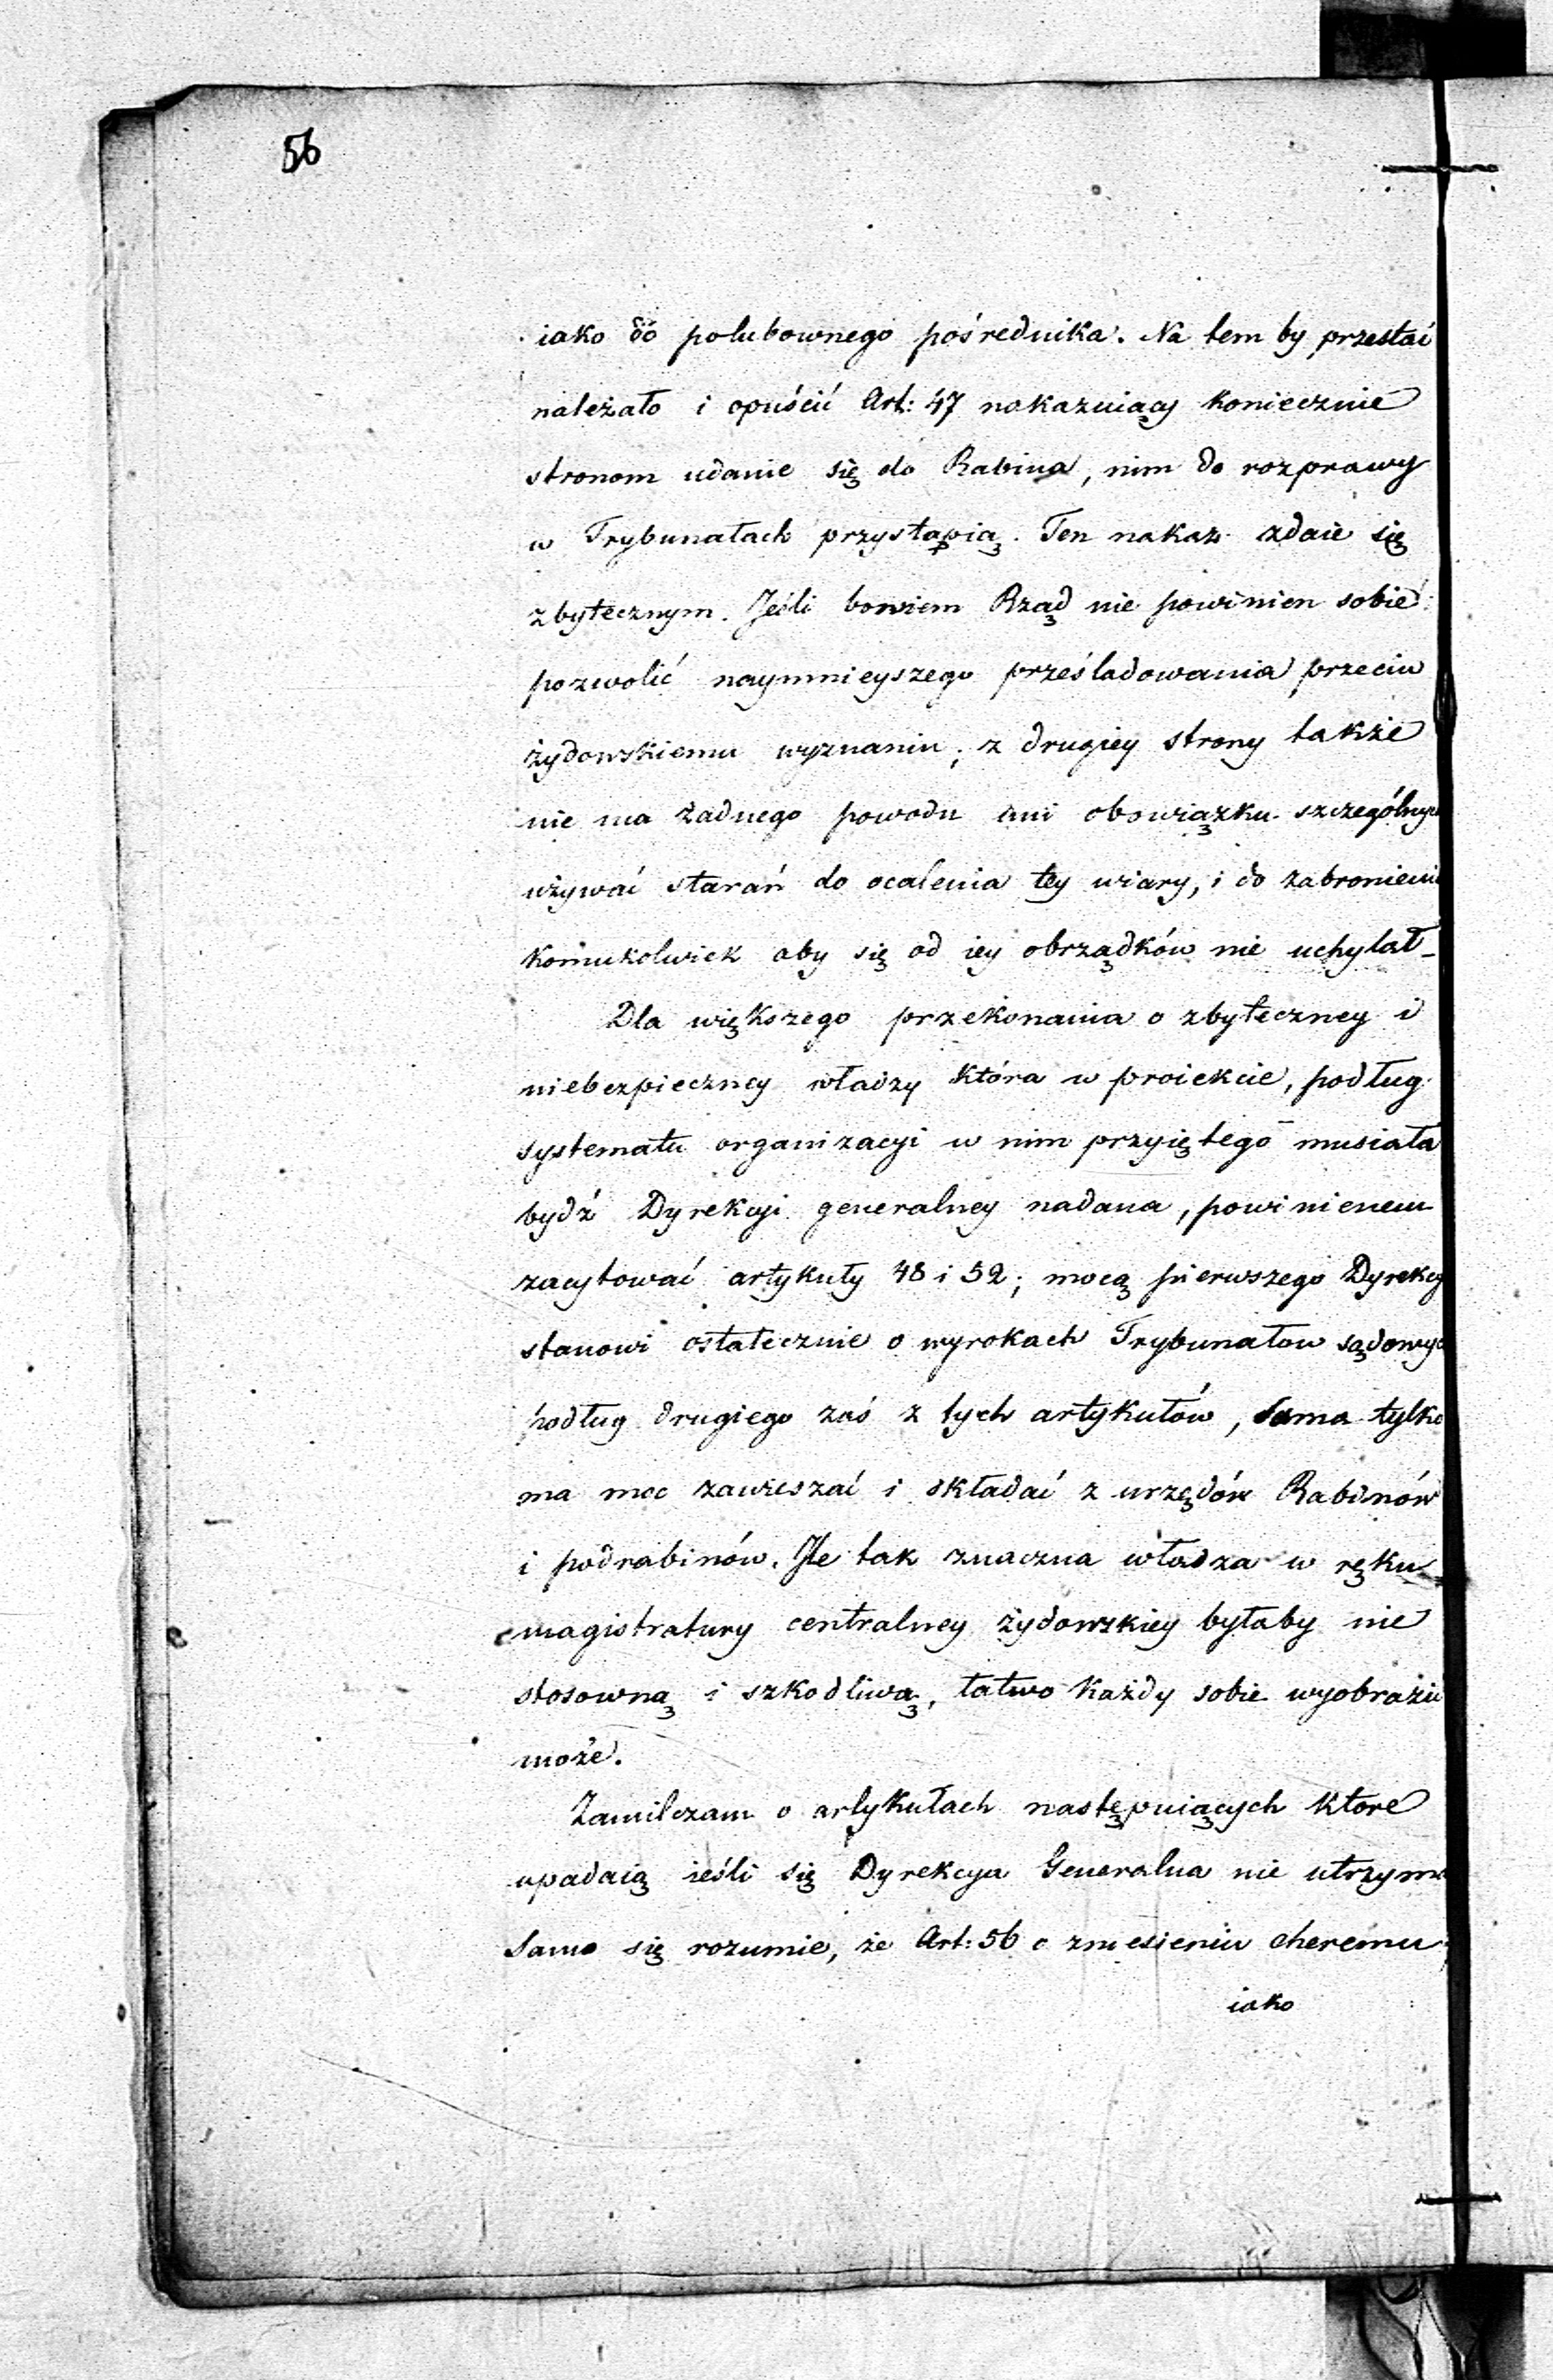 56
iako do polubownego pośrednika. Na tem by przestać
należało i opuścić Art: 47 nakazuiący koniecznie
stronom udanie się do Rabina, nim do rozprawy
w Trybunałach przystąpią. Ten nakaz zdaie się
zbytecznym. Jeśli bowiem Rząd nie powinien sobie
pozwolić naymnieyszego prześladowania przeciw
żydowskiemu wyznaniu; z drugiey strony także
nie ma żadnego powodu ani obowiązku szczególnych
używać starań do ocalenia tey wiary, i do zabronienia
komukolwiek aby się od iey obrządków nie uchylał_
Dla większego przekonania o zbyteczney i
niebezpieczney władzy która w proiekcie, podług
systematu organizacyi w nim przyiętego musiała
bydź Dyrekcyi generalney nadana, powinienem
zacytować artykuły 48 i 52; mocą pierwszego Dyrekcy
stanowi ostatecznie o wyrokach Trybunałow sądowych
podług drugiego zaś z tych artykułów, sama tylko
ma moc zawieszać i składać z urzędów Rabinów
i podrabinów. Ile tak znaczna władza w ręku
magistratury centralney żydowskiey byłaby nie
stosowną i szkodliwą, łatwo każdy sobie wyobrazić
może.
Zamilczam o artykułach następuiących które
upadaią ieśli się Dyrekcya Generalna nie utrzyma
Samo się rozumie, że Art: 56 o zniesieniu cheremu,
iako